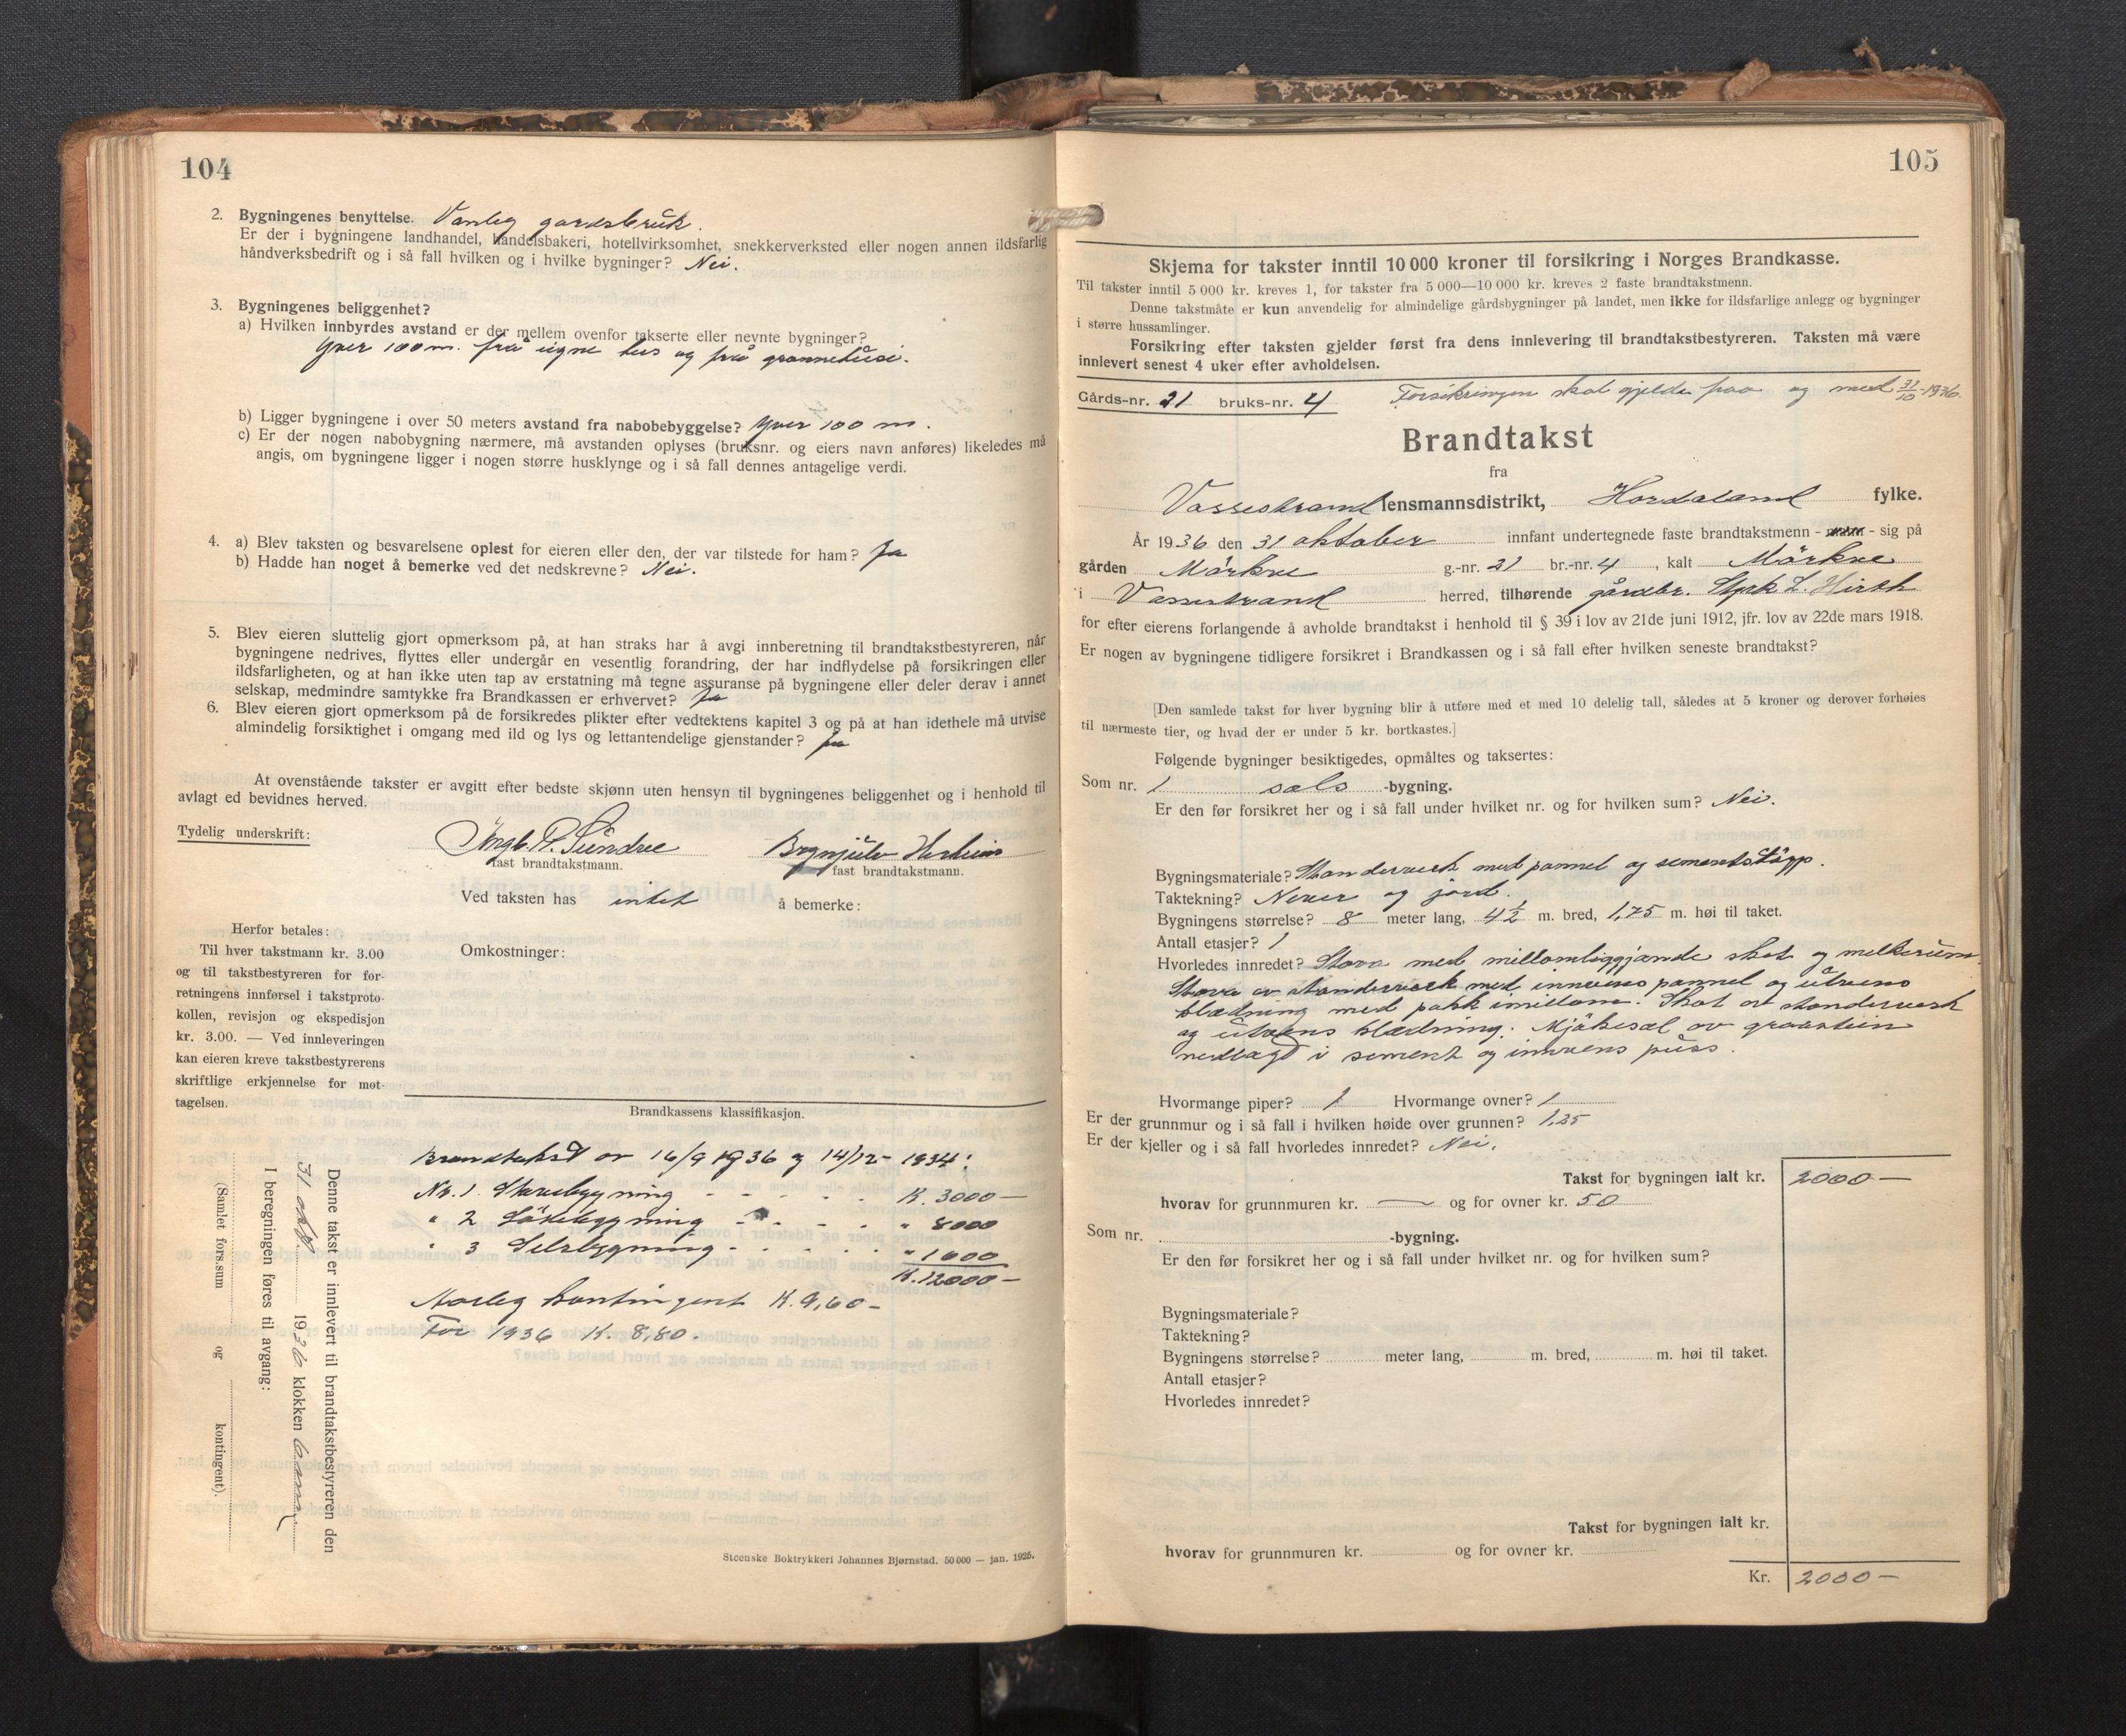 104
2. Bygningenes benyttelse. Vanleg gardsbruk.
Er der i bygningene landhandel, handelsbakeri, hotellvirksomhet, snekkerverksted eller nogen annen ildsfarlig
håndverksbedrift og i så fall hvilken og i hvilke bygninger? Nei.
3. Bygningenes beliggenhet?
a) Hvilken innbyrdes avstand er der mellem ovenfor takserte eller nevnte bygninger?
Yver 100 m. frå eigne hus og frå grannehusi.
b) Ligger bygningene i over 50 meters avstand fra nabobebyggelse? Yver 100 m.
c) Er der nogen nabobygning nærmere, må avstanden oplyses (bruksnr. og eiers navn anføres) likeledes må
angis, om bygningene ligger i nogen større husklynge og i så fall dennes antagelige verdi.
4. a) Blev taksten og besvarelsene oplest for eieren eller den, der var tilstede for ham? Ja
b) Hadde han noget å bemerke ved det nedskrevne? Nei.
5. Blev eieren sluttelig gjort opmerksom på, at han straks har å avgi innberetning til brandtakstbestyreren, når
bygningene nedrives, flyttes eller undergår en vesentlig forandring, der har indflydelse på forsikringen eller
ildsfarligheten, og at han ikke uten tap av erstatning må tegne assuranse på bygningene eller deler derav i annet
selskap, medmindre samtykke fra Brandkassen er erhvervet? Ja
6. Blev eieren gjort opmerksom på de forsikredes plikter efter vedtektens kapitel 3 og på at han idethele må utvise
almindelig forsiktighet i omgang med ild og lys og lettantendelige gjenstander? Ja
At ovenstående takster er avgitt efter bedste skjønn uten hensyn til bygningenes beliggenhet og i henhold til
avlagt ed bevidnes herved.
Tydelig underskrift:
Ingb. P. Sundve Brynjulv Herheim
fast brandtakstmann. fast brandtakstmann.
Ved taksten has intet å bemerke:
Herfor betales:
Til hver takstmann kr. 3.00
og til takstbestyreren for for-
retningens innførsel i takstproto-
kollen, revisjon og ekspedisjon
kr. 3.00. — Ved innleveringen
kan eieren kreve takstbestyrerens
skriftlige erkjennelse for mot-
tagelsen.
Omkostninger:
Brandkassens klassifikasjon.
Brandtakst av 16/9 1936 og 14/12- 1934:
Nr. 1. Stovebygning - - - - - K. 3000 —
" 2 Lödebygning - - - - " 8000
" 3 Selsbygning - - - - - " 1000
K. 12000 —
Aarleg kontingent K. 9,60 -
For 1936 K. 8,80.
Denne takst er innlevert til brandtakstbestyreren den
31 okt. 1936 klokken
I beregningen føres til avgang:
(Samlet fors.sum og kontingent).
Steenske Boktrykkeri Johannes Bjørnstad. 50 000 — jan. 1925.
105
Skjema for takster inntil 10 000 kroner til forsikring i Norges Brandkasse.
Til takster inntil 5 000 kr. kreves 1, for takster fra 5 000—10 000 kr. kreves 2 faste brandtakstmenn.
Denne takstmåte er kun anvendelig for almindelige gårdsbygninger på landet, men ikke for ildsfarlige anlegg og bygninger
i større hussamlinger.
Forsikring efter taksten gjelder først fra dens innlevering til brandtakstbestyreren. Taksten må være
innlevert senest 4 uker efter avholdelsen.
Gårds-nr. 21 bruks-nr. 4 Forsikringen skal gjelde fraa og med 31/10-1936.
Brandtakst
fra
Vossestrand lensmannsdistrikt, Hordaland fylke.
År 1936 den 31 oktober innfant undertegnede faste brandtakstmenn - - sig på
gården Mörkve g.-nr. 21 br.-nr. 4, kalt Mörkve
i Vossestrand herred, tilhørende gårdbr. Styrk L. Hirth
for efter eierens forlangende å avholde brandtakst i henhold til § 39 i lov av 21de juni 1912, jfr. lov av 22de mars 1918.
Er nogen av bygningene tidligere forsikret i Brandkassen og i så fall efter hvilken seneste brandtakst?
[Den samlede takst for hver bygning blir å utføre med et med 10 delelig tall, således at 5 kroner og derover forhøies
til nærmeste tier, og hvad der er under 5 kr. bortkastes.]
Følgende bygninger besiktigedes, opmåltes og taksertes:
Som nr. 1 sæls -bygning.
Er den før forsikret her og i så fall under hvilket nr. og for hvilken sum? Nei.
Bygningsmateriale? Standerverk med pannel og sementstöyp.
Taktekning? Never og jord.
Bygningens størrelse? 8 meter lang, 4½ m. bred, 1,75 m. høi til taket.
Antall etasjer? 1
Hvorledes innredet? Stova med millomliggjande skot og melkerum.
Stova av standerverk med innvens pannel og utvens
klædning med papp imillom. Skot av standerverk
og utvens klædning. Mjölkesel av graastein
nedlagt i sement og innvens puss.
Hvormange piper? 1 Hvormange ovner? 1
Er der grunnmur og i så fall i hvilken høide over grunnen? 1,25
Er der kjeller og i så fall hvorledes innredet? Nei.
Takst for bygningen ialt kr. 2000 —
hvorav for grunnmuren kr. — og for ovner kr. 50
Som nr. -bygning.
Er den før forsikret her og i så fall under hvilket nr. og for hvilken sum?
Bygningsmateriale?
Taktekning?
Bygningens størrelse? meter lang, m. bred, m. høi til taket.
Antall etasjer?
Hvorledes innredet?
Takst for bygningen ialt kr.
hvorav for grunnmuren kr. og for ovner kr.
Kr. 2000 —